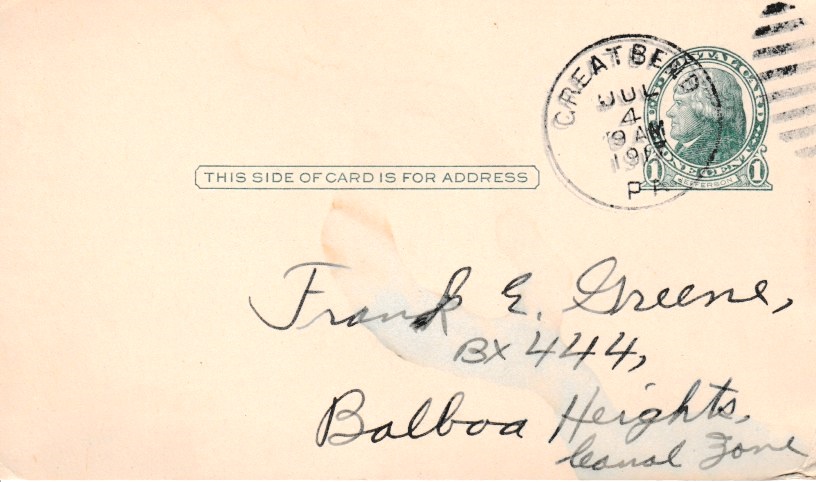 GREAT BEND
JUL
4
9 AM
U.S. POSTAL CARD
ONE CENT
1 JEFFERSON 1
THIS SIDE OF CARD IS FOR ADDRESS
Frank E. Greene,
BX 444,
Balboa Heights,
Canal Zone